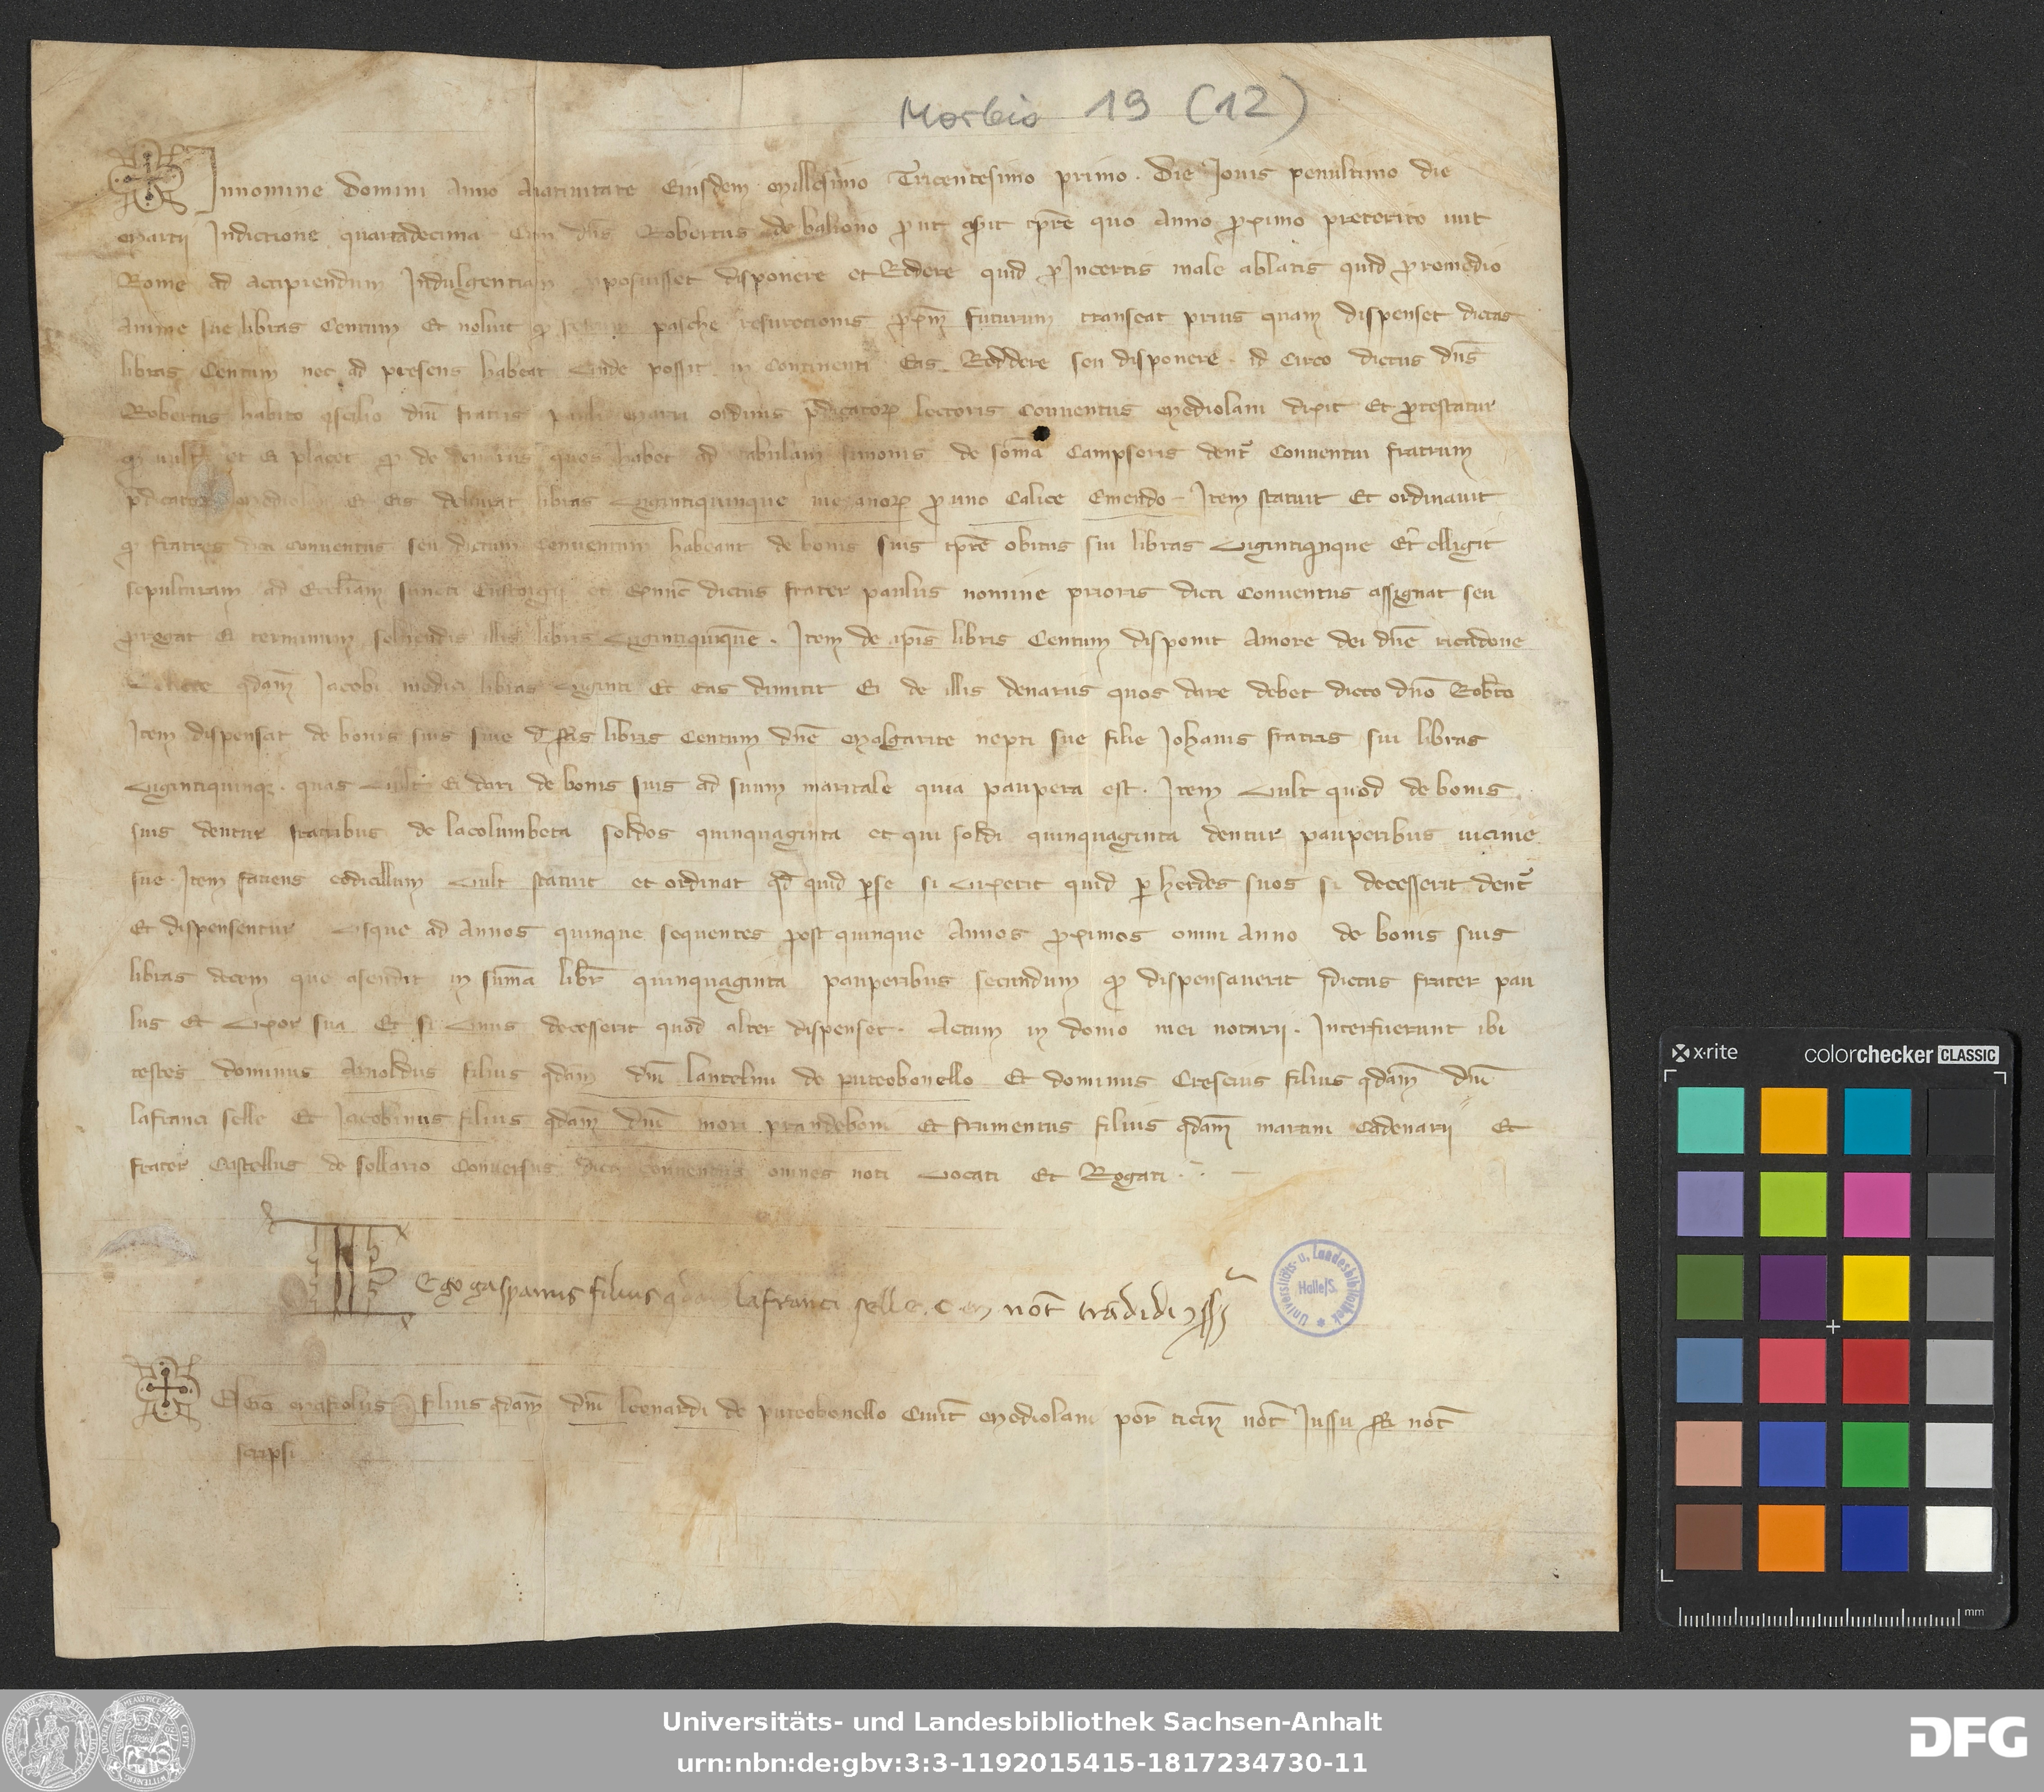 Morbio 19 (12)
Innomine domini anno anativitate Eiusdem millesimo Tricentesimo primo. Die Jovis penultimo die
marcij Indictione quartadecima Cum dns Robertus de baliono prut dixit tpre quo anno proximo preterito ivit
Rome ad accipiendum Indulgentiam proposuisset disponere et Reddere quid proIncertis male ablatis quid proremedio
anime sue libras Centum Et noluit q pasche resurectionis futurum transeat prius quam dispenset dictas
libras Centum nec ad presens habeat Unde possit in Continenti Eas Reddere seu disponere. id Circo dictus dns
Robertus habito consilio dni fratris pauli ordinis predicatorum lectoris Conventus mediolani dixit Et protestatur
q vult et Ei placet q de denariis quos habet ad tabulam simonis de soma Campsoris dentr Conventui fratrum
predicatorum et Eis deliberat libras Vigintiquinque mezanorum pro uno Calice Emendo. Item statuit Et ordinavit
q fratres dicti conventus seu dictum Conventum habeant de bonis suis tpre obitus sui libras Vigintiqinque Et elligit
sepulturam ad Eccliam sancti Eustorgij et Exnunc dictus frater paulus nomine prioris dicti Conventus assignat seu
prorogat Ei terminum solvendis illis libris Vigintiquinque. Item de ipsis libris Centum disponit amore dei dne ricadone
qdam Jacobi medici libras viginti Et Eas dimitit Ei de illis denariis quos dare debet dicto dno Robto
Item dispensat de bonis suis sive d sis libris Centum dne malgarite nepti sue filie Johanis fratris sui libras
Vigintiquinque. quas Vult Ei dari de bonis suis ad suum maritale quia paupera est. Item Vult quod de bonis
suis dentur fratribus de lacolumbeta soldos quinquaginta et qui soldi quinquaginta dentur pauperibus vicinie
sue. Item faciens codicillum Vult statuit et ordinat qd quid per se si Vixerit quid per herdes suos si decesserit dentr
Et dispensentur Usque ad annos quinque sequentes post quinque annos proximos omni anno de bonis suis
libras decem que asendit in suma libr quinquaginta pauperibus secundum q dispensaverit dictus frater pau
lus Et Uxor sua Et si Unus decesserit quod alter dispenset. Actum in domo mei notarij. Interfuerunt ibi
testes dominus Arnoldus filius qdam dni lantelmi de puteobonello Et dominus Crescius filius qdam dni
lafranci selle Et Jacobinus filius qdam dni mori prandeboni Et frumentus filius qdam martini Cadenarij Et
frater Castellus de sollario Conversus dicti conventus omnes noti Vocati Et Rogati.
Ego gasparinus filius qdam lafranci selle. C. M not tradidi et ss
Ego mafiolus filius qdam dni leonardi de puteobonello Civit mediolani por ticin not Jussu sti not
scripsi
Universitäts- u. Landesbibliothek
Halle/S.
x-rite colorchecker CLASSIC
mm
Universitäts- und Landesbibliothek Sachsen-Anhalt
urn:nbn:de:gbv:3:3-1192015415-1817234730-11
DFG